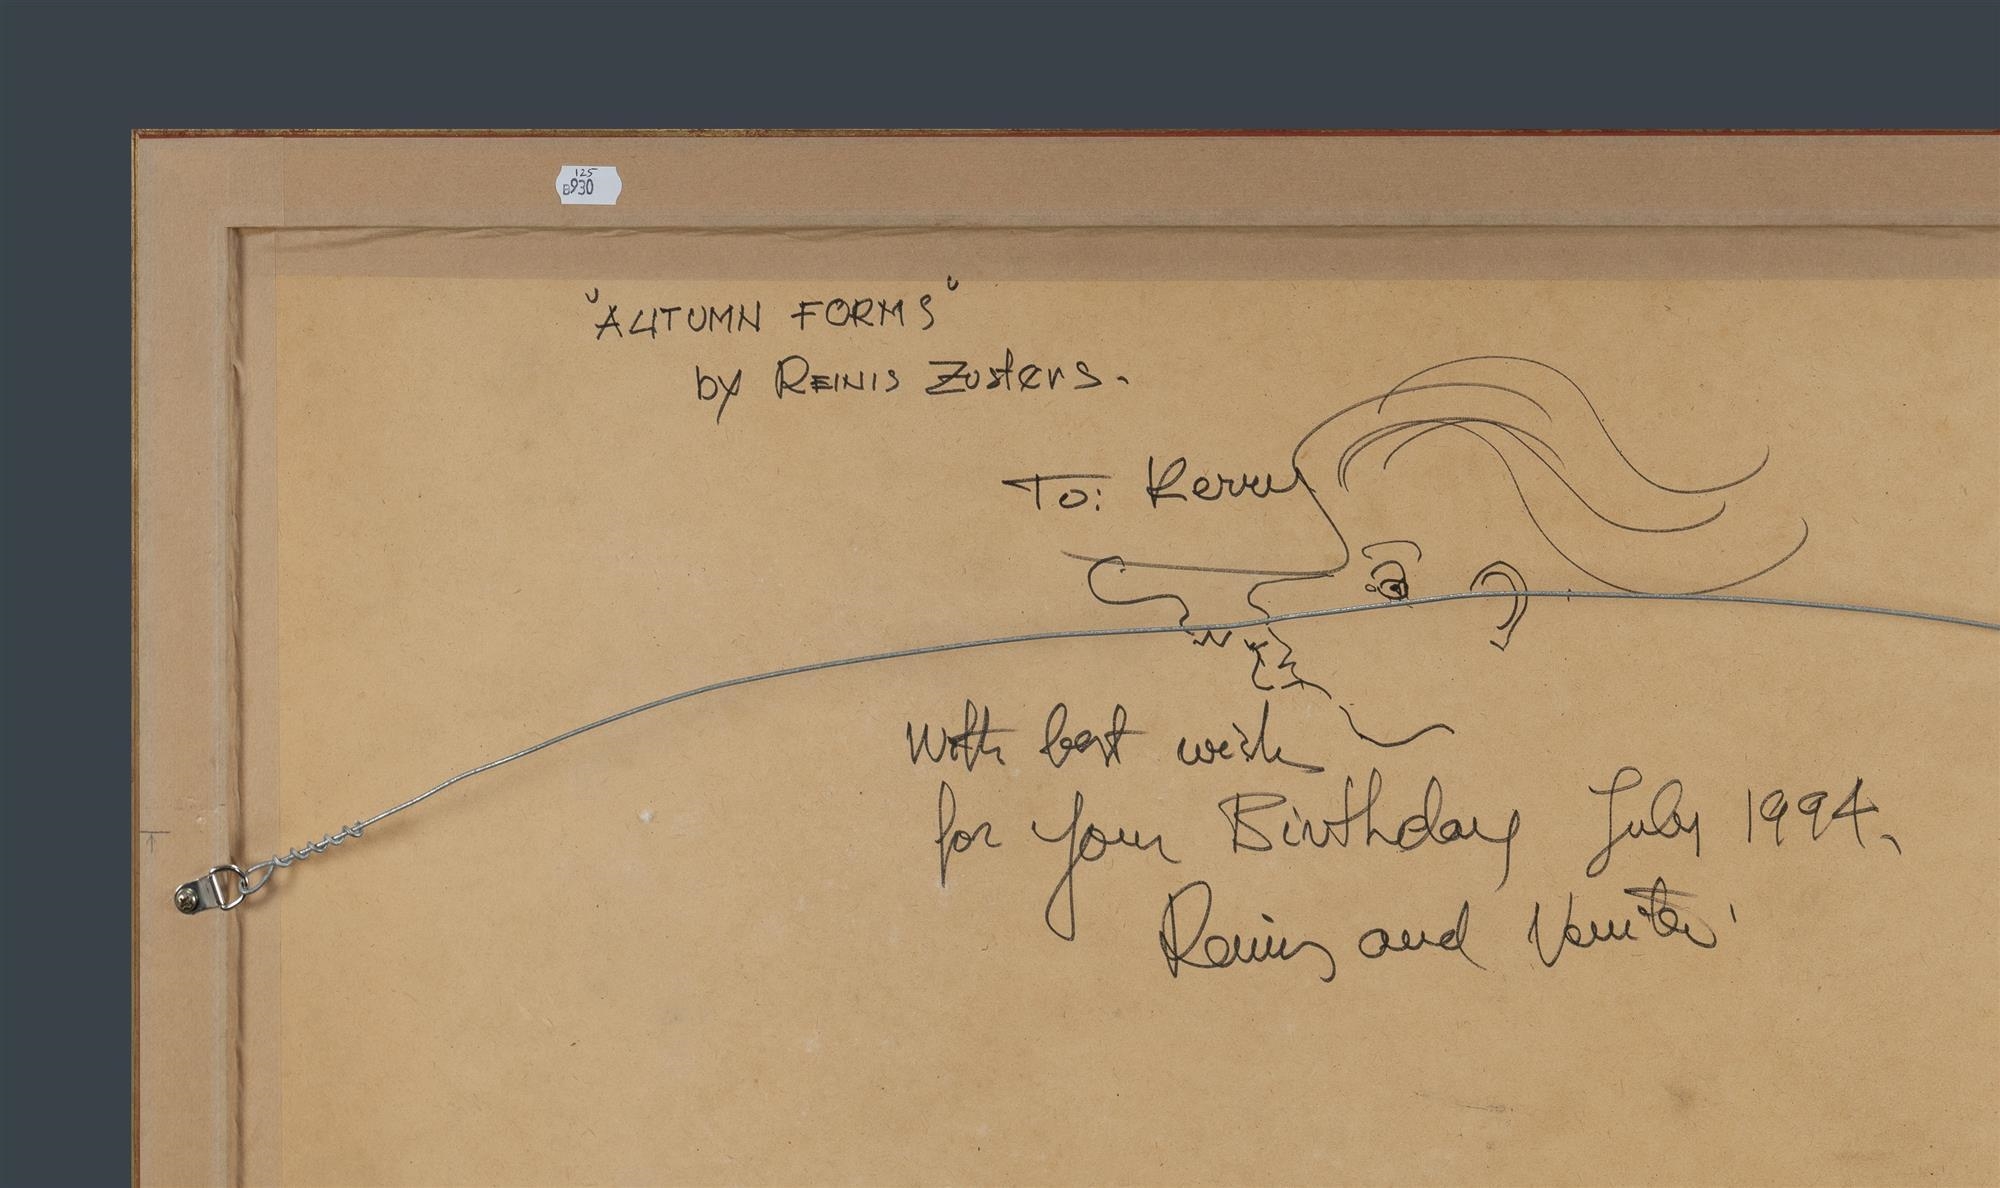 125
B930
"AUTUMN FORMS"
by REINIS Zusters.
To: Kerry
With best wish
for your Birthday July 1994.
Reinis and Venita